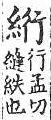 絎
行孟切
縫紩也